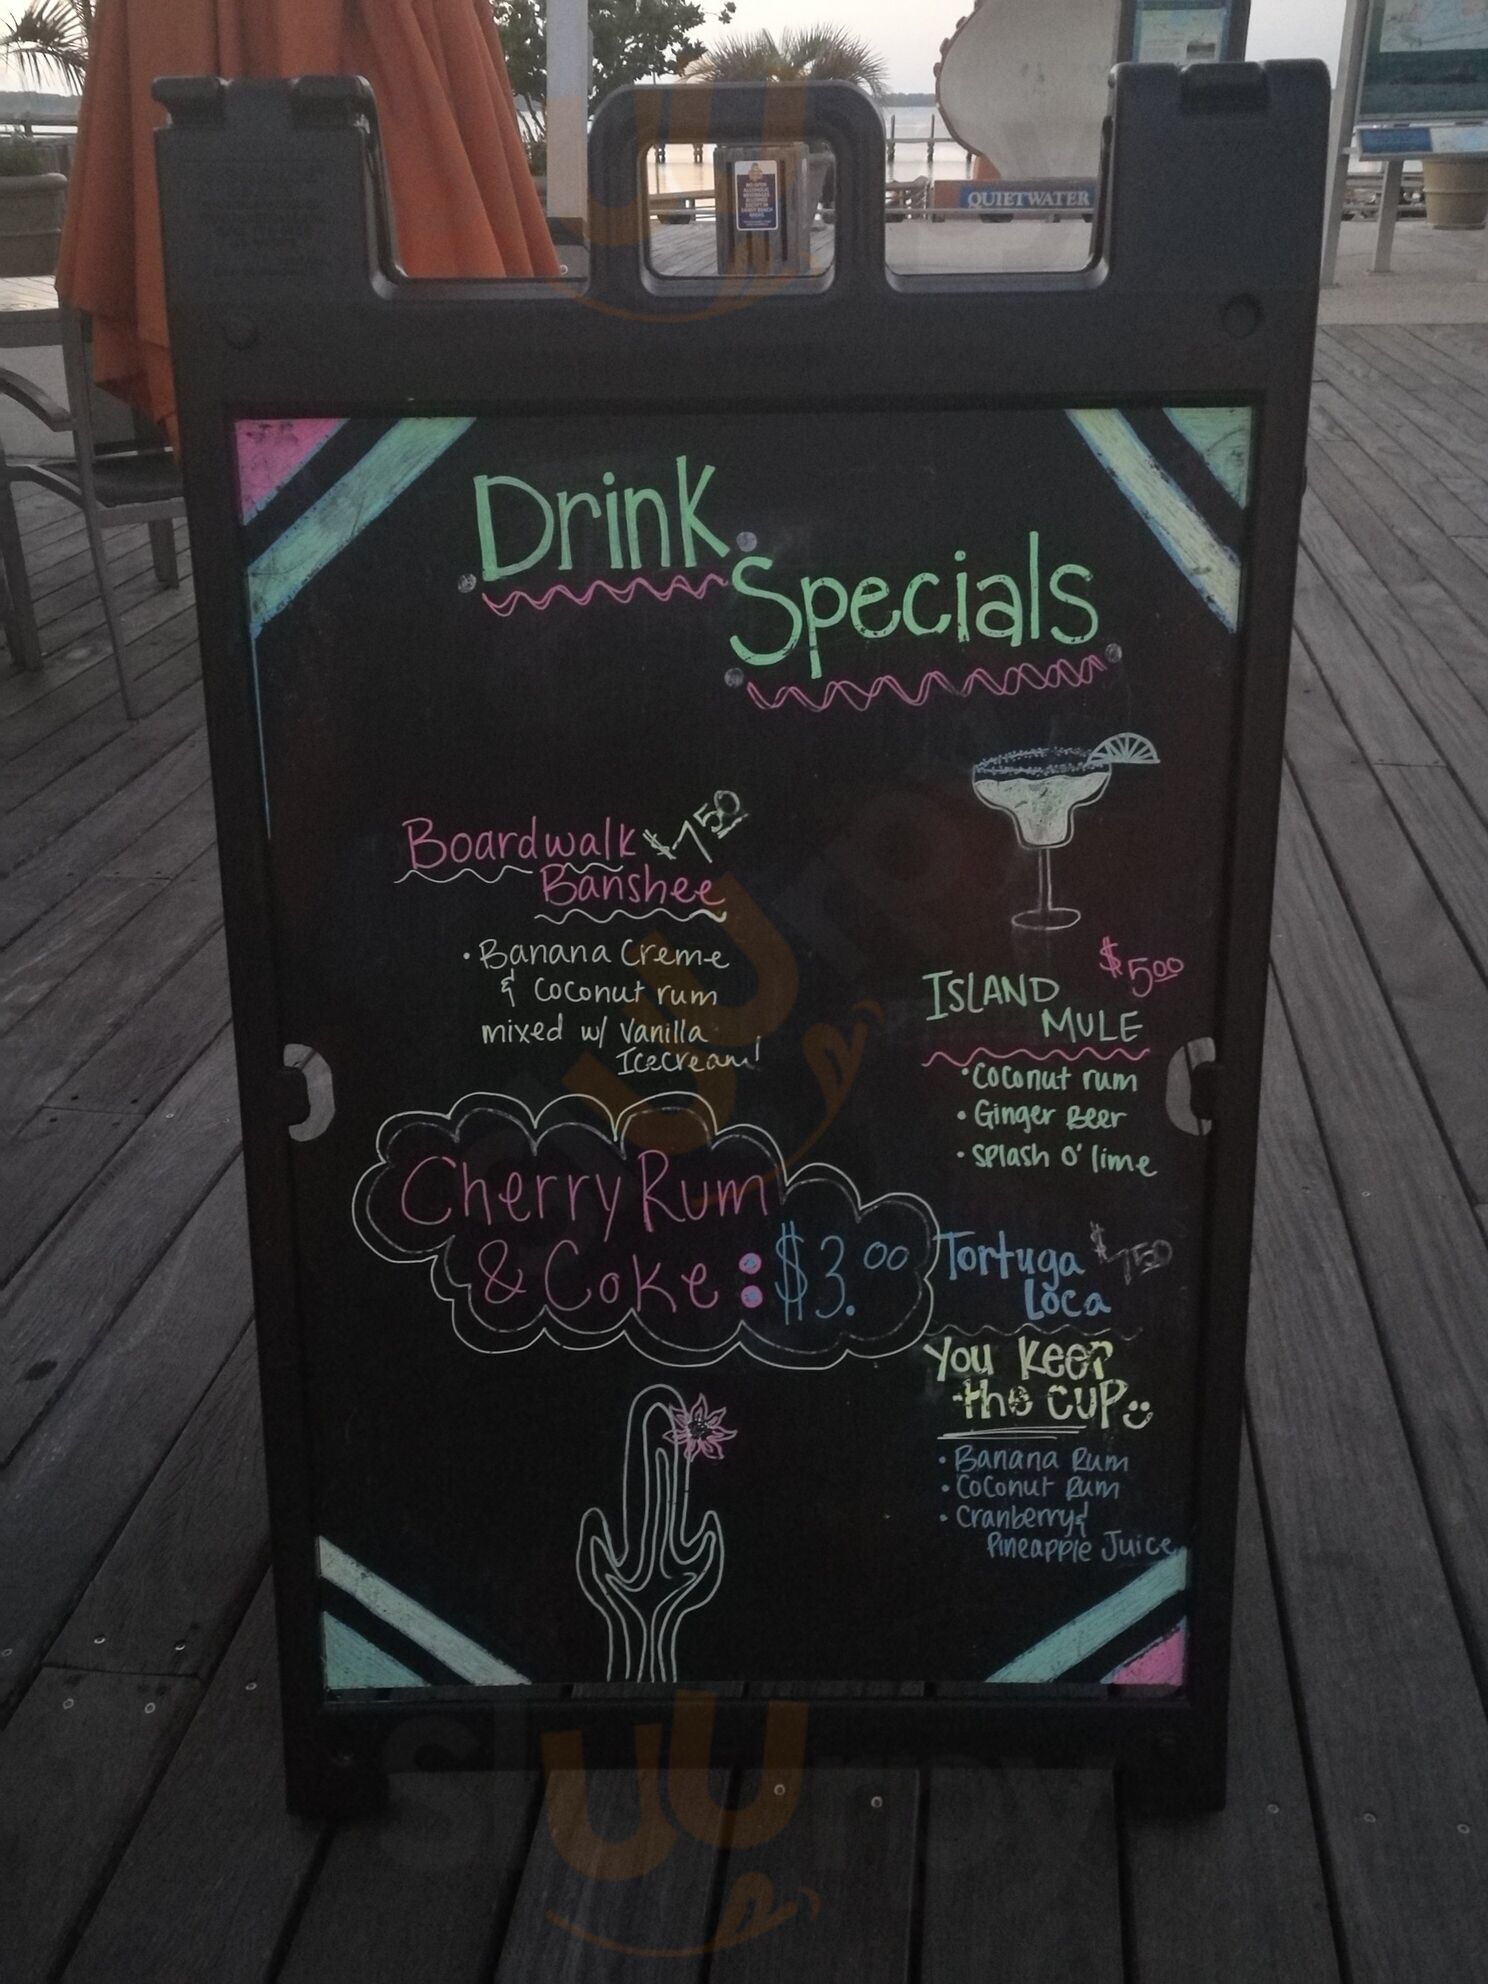 QUIETWATER
NO OPEN
ALCOHOLIC
BEVERAGES
ALLOWED
EXCEPT IN
Drink
Specials
Boardwalk $7.50
Banshee
• Banana Creme
& Coconut rum
mixed w/ Vanilla
Icecream!
$5.00
ISLAND
MULE
• Coconut rum
• Ginger Beer
• Splash O' lime
Cherry Rum
& Coke : $3.00
Tortuga $7.50
Loca
You Keep
the CUP
• Banana Rum
• Coconut Rum
• Cranberry &
Pineapple Juice
sluurpy
sluurpy
sluurpy